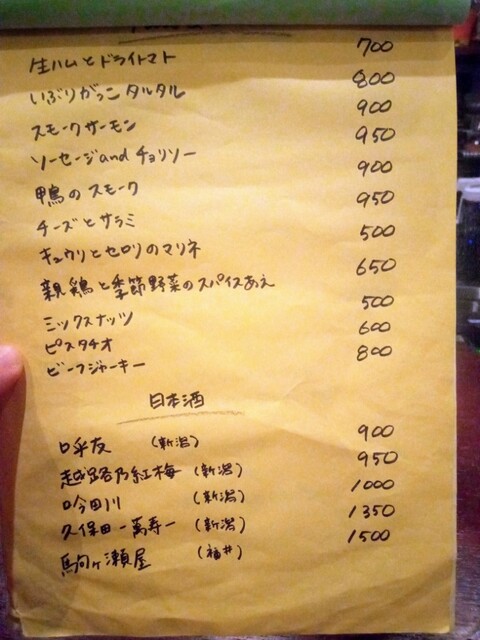 生ハムとドライトマト 700
いぶりがっこタルタル 800
スモークサーモン 900
ソーセージandチョリソー 950
鴨のスモーク 900
チーズとサラミ 950
キュウリとセロリのマリネ 500
親鶏と季節野菜のスパイスあえ 650
ミックスナッツ 500
ピスタチオ 600
ビーフジャーキー 800
日本酒
呼友 (新潟) 900
越路乃紅梅 (新潟) 950
吟田川 (新潟) 1000
久保田-萬寿- (新潟) 1350
駒ヶ瀬屋 (福井) 1500